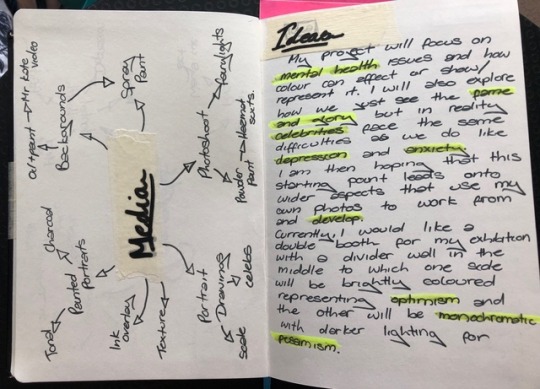 Media
Backgrounds
Oil paint → Mr Lote
video
Spray
Paint
Photoshoot
fairylights
Powder → Hazmat
paint suits.
Portrait
Drawings
celebs
scale
Ink
overlay
Texture
Painted
Portraits
charcoal
Tonal
Ideas
My project will focus on
mental health issues and how
colour can effect or show/
represent it. I will also explore
how we just see the fame
and glory but in reality
celebrities face the same
difficulties as we do like
depression and anxiety.
I am then hoping that this
starting point leads onto
wider aspects that use my
own photos to work from
and develop.
Currently, I would like a
double booth for my exhibition
with a divider wall in the
middle to which one side
will be brightly coloured
representing optimism and
the other will be monochromatic
with darker lighting for
pessimism.